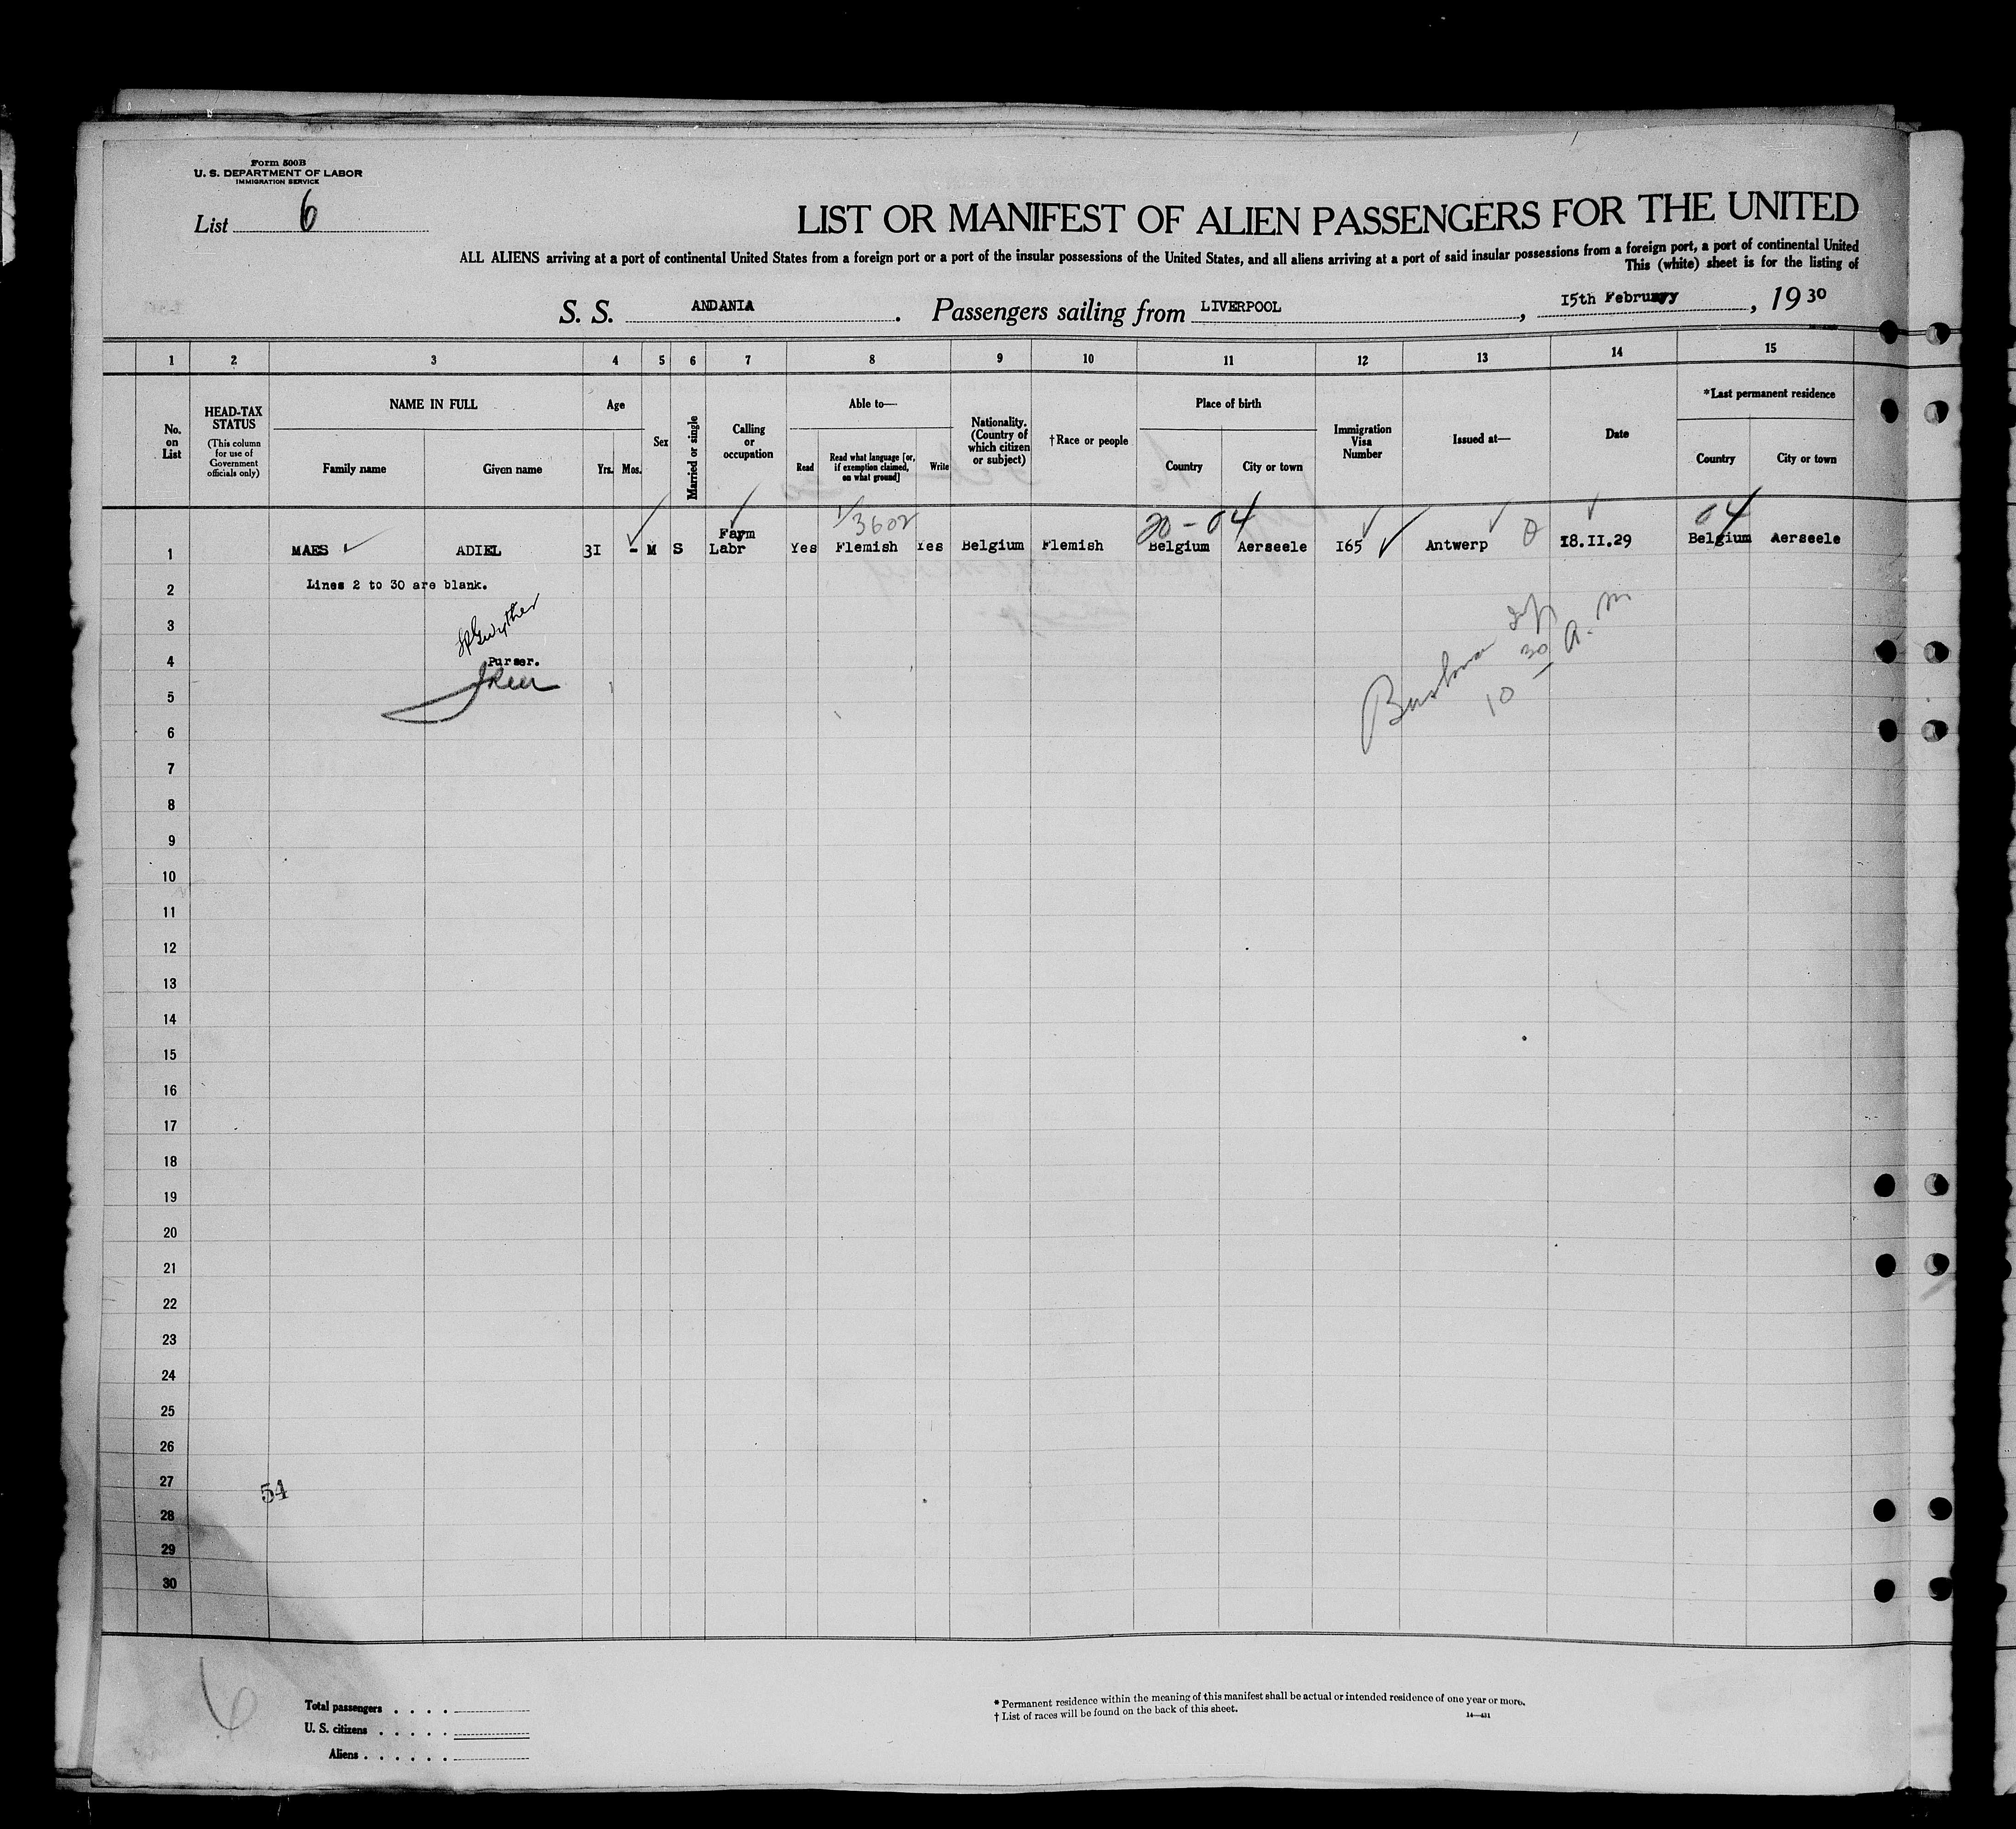 Form 500B
U. S. DEPARTMENT OF LABOR
IMMIGRATION SERVICE
List 6
LIST OR MANIFEST OF ALIEN PASSENGERS FOR THE UNITED
ALL ALIENS arriving at a port of continental United States from a foreign port or a port of the insular possessions of the United States, and all aliens arriving at a port of said insular possessions from a foreign port, a port of continental United
This (white) sheet is for the listing of
S. S. ANDANIA. Passengers sailing from LIVERPOOL, 15th February, 1930
1 2 3 4 5 6 7 8 9 10 11 12 13 14 15
No. on List
HEAD-TAX STATUS (This column for use of Government officials only)
NAME IN FULL
Family name Given name
Age
Yrs. Mos.
Sex
Married or single
Calling or occupation
Able to—
Read
Read what language [or, if exemption claimed, on what ground]
Write
Nationality. (Country of which citizen or subject)
†Race or people
Place of birth
Country City or town
Immigration Visa Number
Issued at—
Date
*Last permanent residence
Country City or town
1/3602 20-04 04
1 MAES ✓ ADIEL 31 - M S Farm Labr Yes Flemish Yes Belgium Flemish Belgium Aerseele 165 ✓ Antwerp 18.II.29 Belgium Aerseele
2 Lines 2 to 30 are blank.
3
4 Purser.
5
10 30 A. M
6
7
8
9
10
11
12
13
14
15
16
17
18
19
20
21
22
23
24
25
26
27
54
28
29
30
6
Total passengers . . . .
U. S. citizens . . . . .
Aliens . . . . . .
* Permanent residence within the meaning of this manifest shall be actual or intended residence of one year or more.
† List of races will be found on the back of this sheet.
14—431